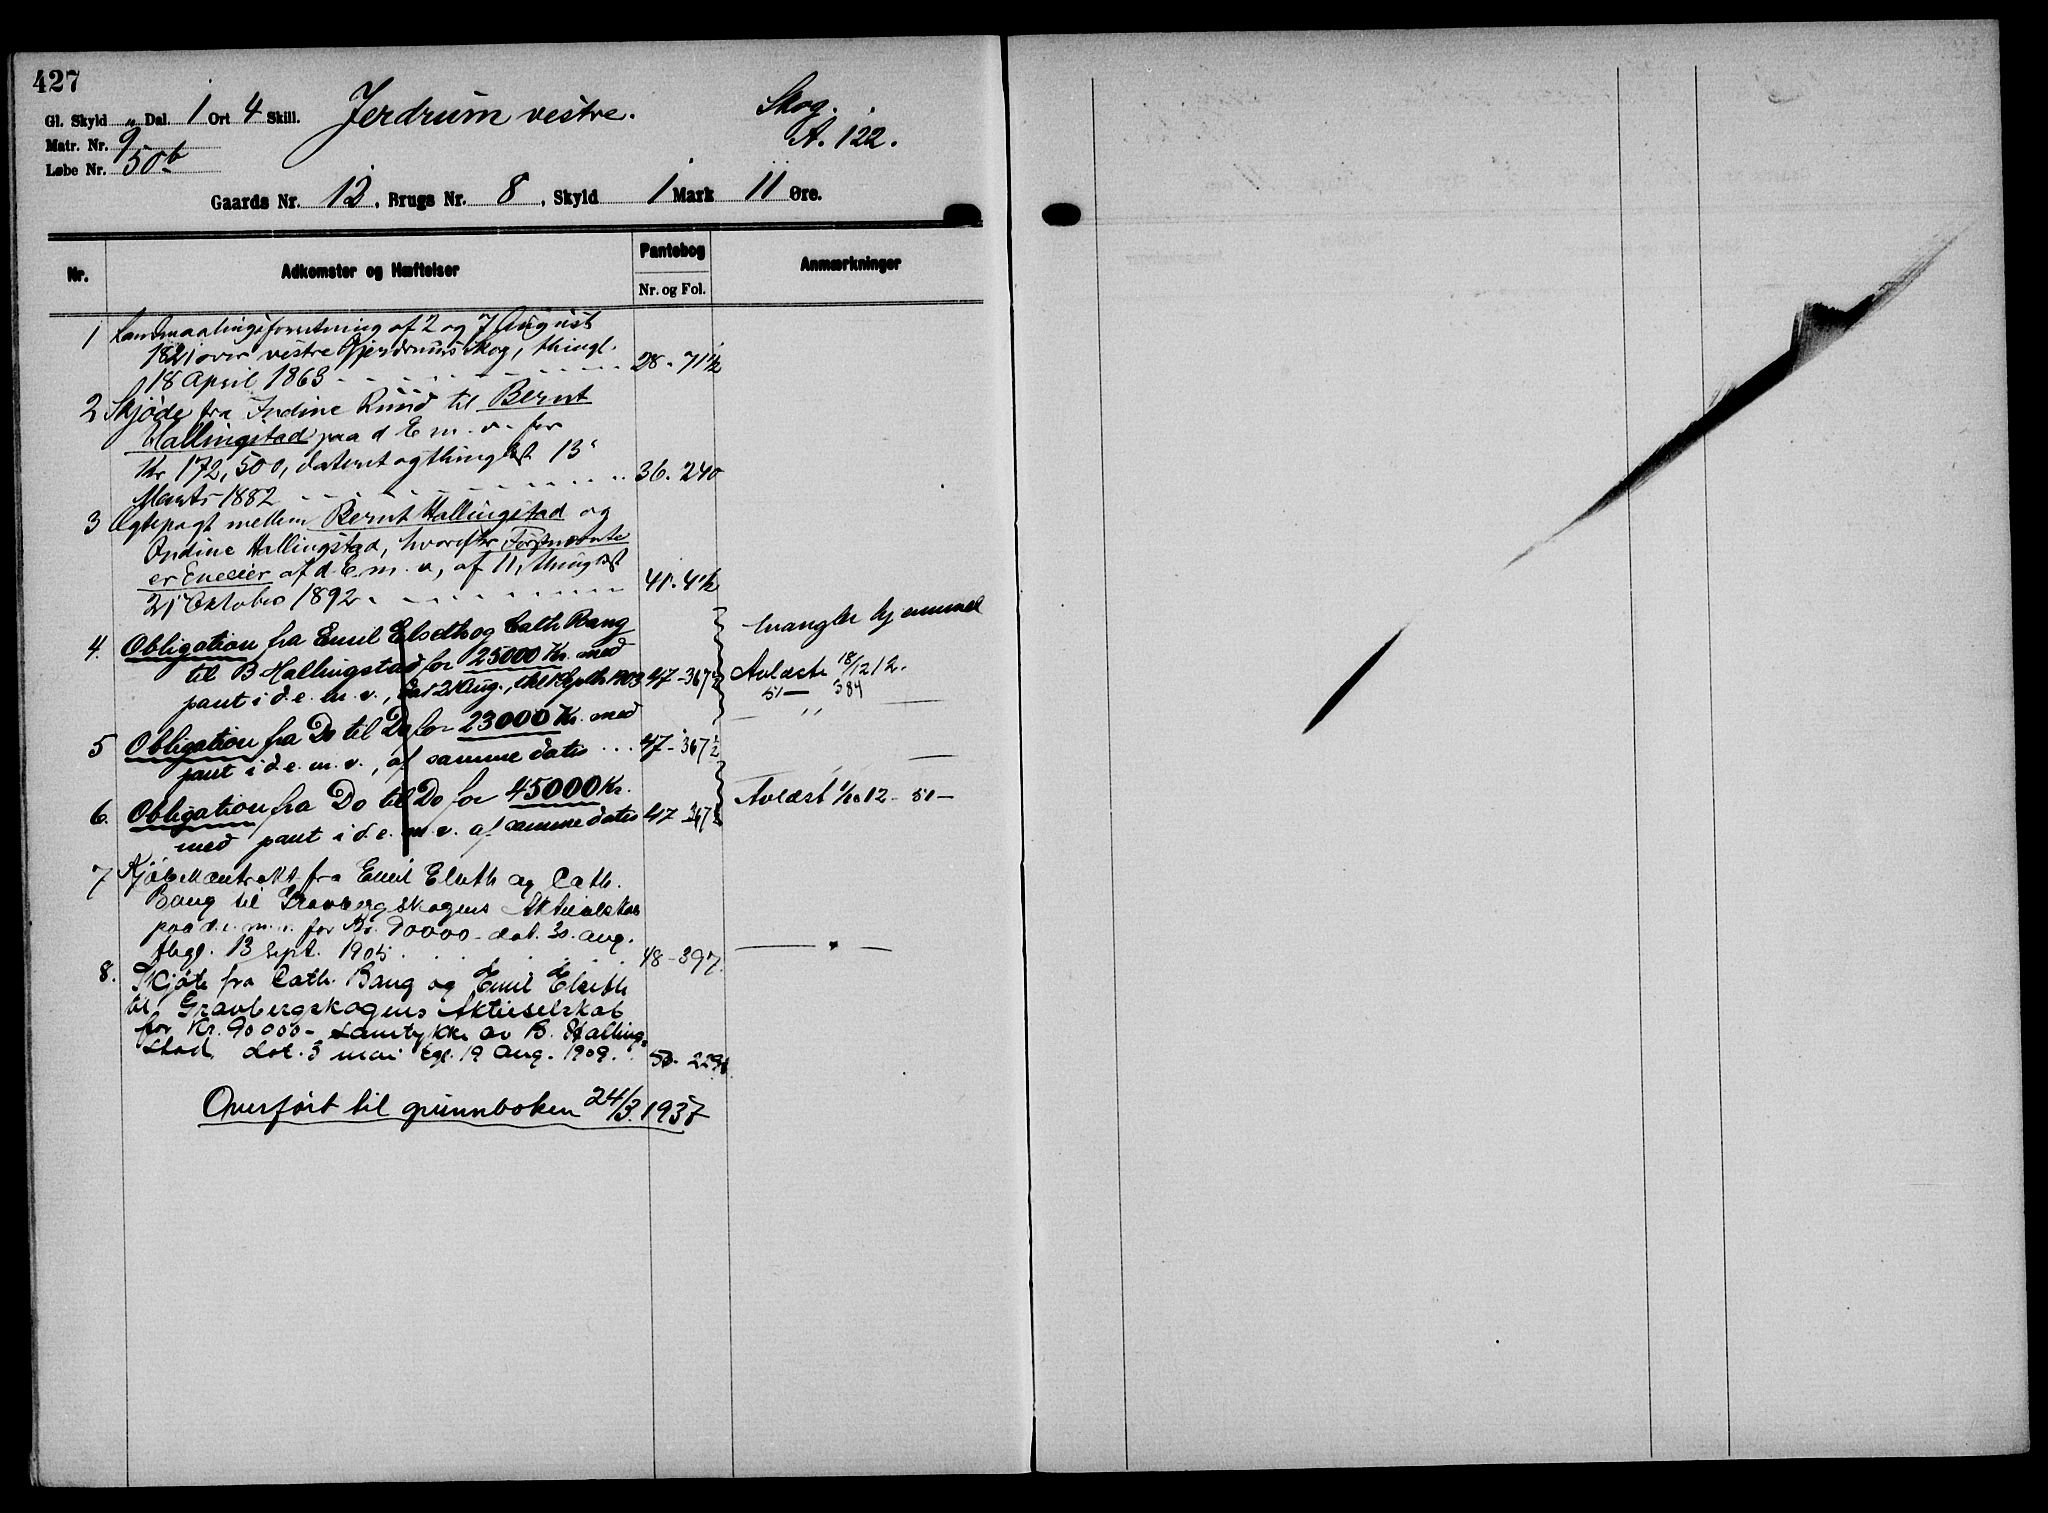 427
Gl. Skyld " Dal. 1 Ort 4 Skill. Jerdrum vestre. Skog.
Matr. Nr. 9 A. 122.
Løbe Nr. 50b
Gaards Nr. 12, Brugs Nr. 8, Skyld 1 Mark 11 Øre.
Nr. Adkomster og Hæftelser Pantebog Nr. og Fol. Anmærkninger
1 Landmaalingsforretning af 2 og 7 August
1821 over vestre Gjerdrums Skog, thingl.
18 April 1863 28 - 71 1/2
2 Skjøde fra Indine Ruud til Bernt
Hallingstad paa d E m. v. for
Kr 172,500, dateret og thinglæst 13
Marts 1882 36. 240
3 Ægtepagt mellem Bernt Hallingstad og
Ondine Hallingstad, hvorefter Førstnævnte
er Eneeier af d. E. m. v., af 11, thinglæst
21 Oktober 1892 41. 4 1/2
4. Obligation fra Emil Elseth og Cath Bang mangler hjemmel
til B Hallingstad for 25000 Kr. med Avlæste 18/12 12.
pant i d. e. m. v., 12 Aug., 1903 47 - 367 1/2 51 — 384
5 Obligation fra Do til Do for 23000 Kr. med — " —
pant i d. e. m. v., af samme dato ... 47 - 367 1/2
6. Obligation fra Do til Do for 45000 Kr. Avlæst 1/10 12 - 51 —
med pant i d. e. m. v. af samme dato 47 - 367 1/2
7 Kjøbekontrakt fra Emil Elseth og Cath.
Bang til Gravbergskogens Aktieselskab
paa d. e. m. v. for Kr. 90000 - dat. 30. aug.
tlgl. 13 sept. 1905 48 - 397.
8. Skjøte fra Cath. Bang og Emil Elseth
til Gravbergskogens Aktieselskab
for Kr. 90000 - samtykke av B. Halling-
stad, dat. 3 mai tgl. 19 aug. 1909. 50 - 229
Overført til grunnboken 24/3. 1937